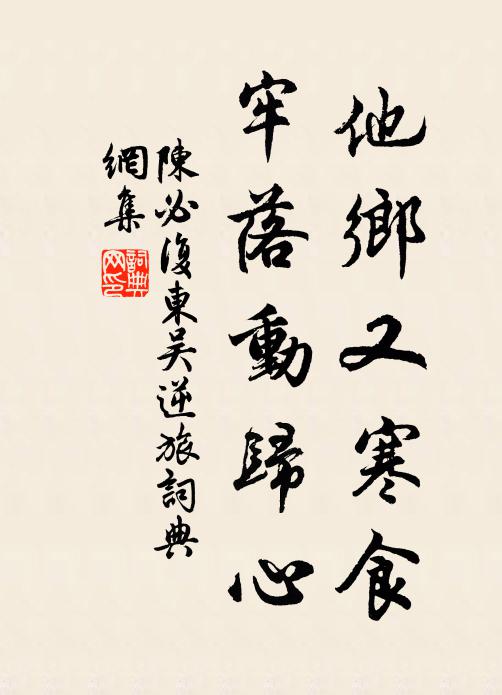 他鄉又寒食
牢落動歸心
陳必復東吳逆旅詞典
網集
詞典
网印